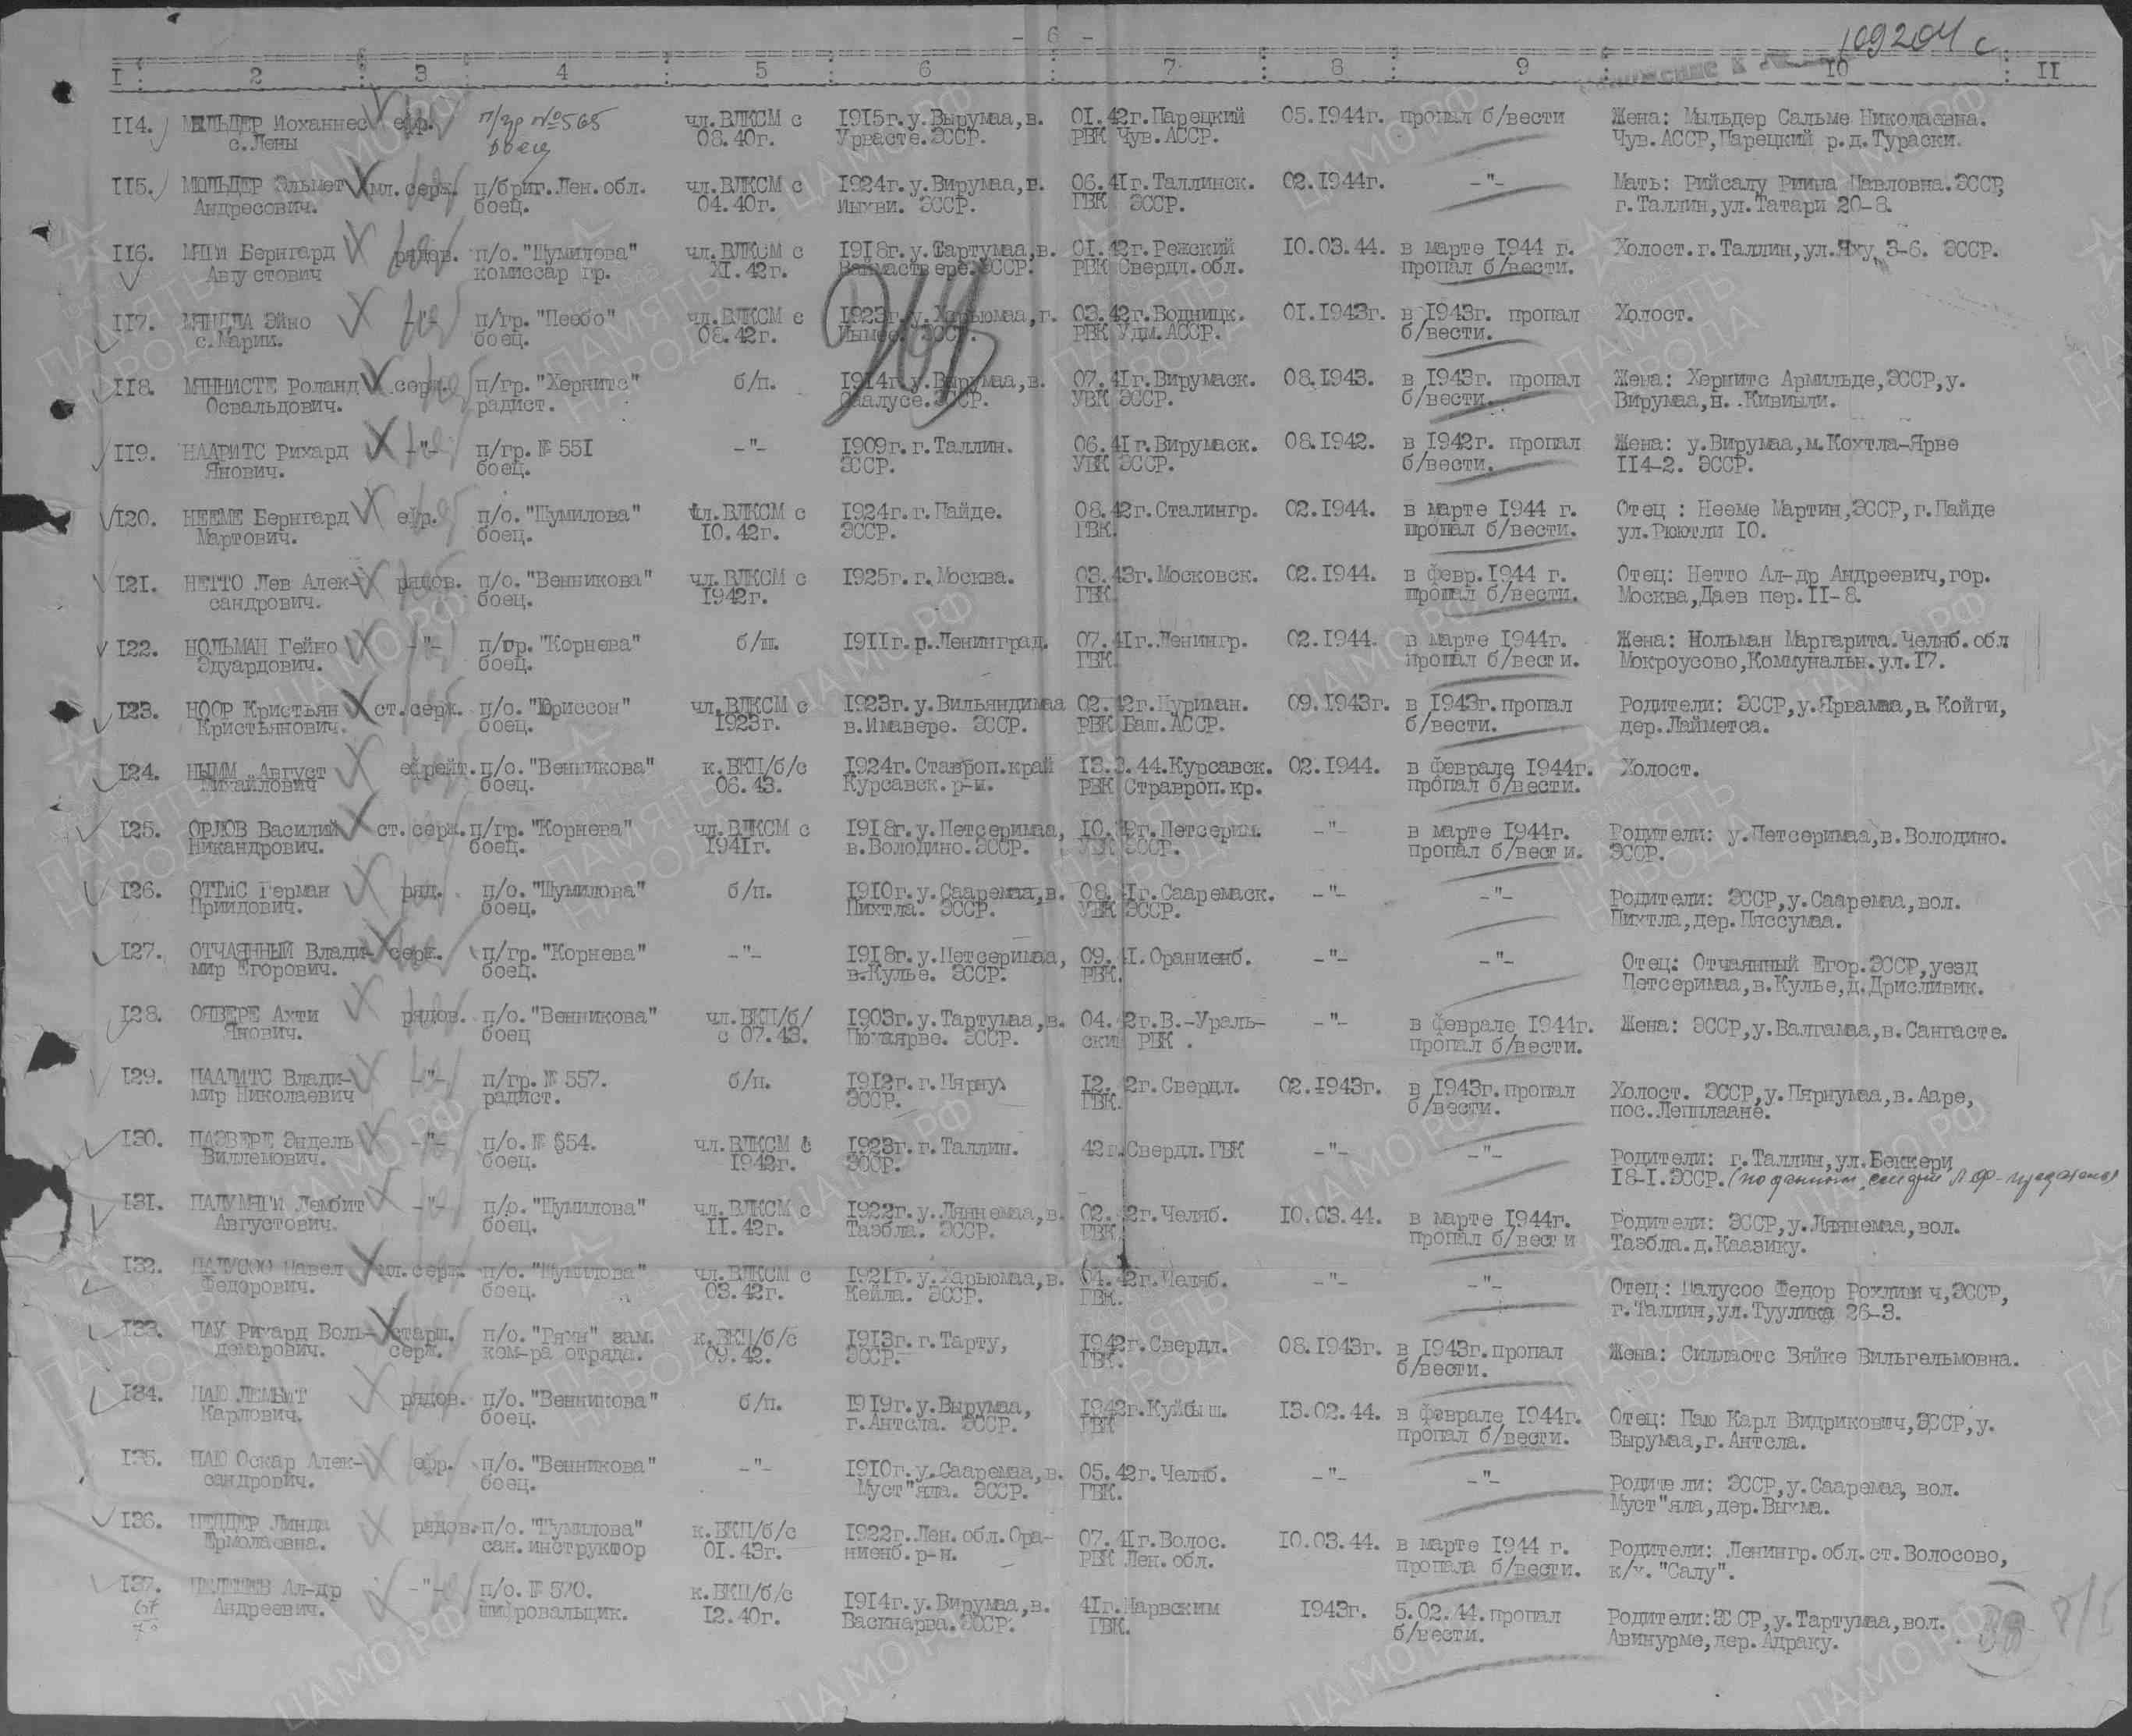 - 6 -
109204 с
I 2 3 4 5 6 7 8 9 10 II
II4. МЫЛЬДЕР Иоханнес ефр. п/гр №565 чл.ВЛКСМ с 1915г.у.Вырумаа,в. 01.42г.Парецкий 05.1944г. пропал б/вести Жена: Мыльдер Сальме Николаевна.
с.Лены боец 08.40г. Урвасте.ЭССР. РВК Чув.АССР. Чув.АССР,Парецкий р.д.Тураски.
II5. МЮЛЬДЕР Эльмет мл.серж. п/бриг.Лен.обл. чл.ВЛКСМ с 1924г.у.Вирумаа,в. 06.41г.Таллинск. 02.1944г. -"- Мать: Рийсалу Риина Павловна.ЭССР,
Андресович. боец. 04.40г. Иыхви. ЭССР. ГВК ЭССР. г.Таллин,ул.Татари 20-8.
II6. МЯГИ Бернгард рядов. п/о."Шумилова" чл.ВЛКСМ с 1918г.у.Тартумаа,в. 01.42г.Режский 10.03.44. в марте 1944 г. Холост.г.Таллин,ул.Яху 3-6. ЭССР.
Августович комиссар гр. XI.42г. РВК Свердл.обл. пропал б/вести.
II7. МЯНДЛА Эйно -"- п/гр."Пеебо" чл.ВЛКСМ с 1923г.у.Харьюмаа,г. 03.42г.Водницк. 01.1943г. в 1943г. пропал Холост.
с.Марии. боец. 08.42г. РВК Удм.АССР. б/вести.
II8. МЯННИСТЕ Роланд серж. п/гр."Хернитс" б/п. 1914г.у.Вирумаа,в. 07.41г.Вирумаск. 08.1943. в 1943г. пропал Жена: Хернитс Армильде,ЭССР,у.
Освальдович. радист. УВК ЭССР. б/вести. Вирумаа,п. Кивиыли.
II9. НААРИТС Рихард -"- п/гр.№ 551 -"- 1909г.г.Таллин. 06.41г.Вирумаск. 08.1942. в 1942г. пропал Жена: у.Вирумаа,м.Кохтла-Ярве
Янович. боец. ЭССР. УВК ЭССР. б/вести. II4-2. ЭССР.
I20. НЕЕМЕ Бернгард ефр. п/о."Шумилова" чл.ВЛКСМ с 1924г.г.Пайде. 08.42г.Сталингр. 02.1944. в марте 1944 г. Отец : Нееме Мартин,ЭССР,г.Пайде
Мартович. боец. 10.42г. ЭССР. ГВК. пропал б/вести. ул.Рюютли 10.
I21. НЕТТО Лев Алек- рядов. п/о."Венникова" чл.ВЛКСМ с 1925г.г.Москва. 03.43г.Московск. 02.1944. в февр.1944 г. Отец: Нетто Ал-др Андреевич,гор.
сандрович. боец. 1942г. ГВК. пропал б/вести. Москва,Даев пер.II-8.
I22. НОЛЬМАН Гейно -"- п/гр."Корнева" б/п. 1911г.г.Ленинград. 07.41г.Ленингр. 02.1944. в марте 1944г. Жена: Нольман Маргарита.Челяб.обл
Эдуардович. боец. ГВК. пропал б/вести. Мокроусово,Коммунальн.ул.17.
I23. НООР Кристьян ст.серж. п/о."Юриссон" чл.ВЛКСМ с 1923г.у.Вильяндимаа 02.42г.Нуриман. 09.1943г. в 1943г.пропал Родители: ЭССР,у.Ярвамаа,в.Койги,
Кристьянович. боец. 1923г. в.Имавере. ЭССР. РВК Баш.АССР. б/вести. дер.Лайметса.
I24. НЫММ Август ефрейт. п/о."Венникова" к.ВКП/б/с 1924г.Ставроп.край 13.3.44.Курсавск. 02.1944. в феврале 1944г. Холост.
Михайлович боец. 06.43. Курсавск.р-н. РВК Стравроп.кр. пропал б/вести.
I25. ОРЛОВ Василий ст.серж. п/гр."Корнева" чл.ВЛКСМ с 1918г.у.Петсеримаа, Петсерим. -"- в марте 1944г. Родители: у.Петсеримаа,в.Володино.
Никандрович. боец. 1941г. в.Володино.ЭССР. УВК ЭССР. пропал б/вести. ЭССР.
I26. ОТТИС Герман ряд. п/о."Шумилова" б/п. 1910г.у.Сааремаа,в. 08.41г.Сааремаск. -"- -"- Родители: ЭССР,у.Сааремаа,вол.
Приидович. боец. Пихтла. ЭССР. УВК ЭССР. Пихтла,дер.Пяссумаа.
I27. ОТЧАЯННЫЙ Влади- серж. п/гр."Корнева" -"- 1918г.у.Петсеримаа, 09.41.Ораниенб. -"- -"- Отец: Отчаянный Егор.ЭССР,уезд
мир Егорович. боец. в.Кулье. ЭССР. РВК. Петсеримаа,в.Кулье,д.Дрисливик.
I28. ОЯВЕРЕ Ахти рядов. п/о."Венникова" чл.ВКП/б/ 1903г.у.Тартумаа,в. 04.42г.В.-Ураль- -"- в феврале 1944г. Жена: ЭССР,у.Валгамаа,в.Сангасте.
Янович. боец с 07.43. ЭССР. ский РВК . пропал б/вести.
I29. ПААЛИТС Влади- -"- п/гр.№ 557. б/п. 1912г.г.Пярну. 12.42г.Свердл. 02.1943г. в 1943г.пропал Холост. ЭССР,у.Пярнумаа,в.Ааре,
мир Николаевич радист. ЭССР. ГВК. б/вести. пос.Лепплаане.
I30. ПАЭВЕРЕ Эндель -"- п/о.№ 554. чл.ВЛКСМ с 1923г.г.Таллин. 42г.Свердл.ГВК -"- -"- Родители: г.Таллин,ул.Беккери
Виллемович. боец. 1942г. ЭССР. 18-I.ЭССР.
I31. ПАЛУМЯГИ Лембит -"- п/о."Шумилова" чл.ВЛКСМ с 1922г.у.Ляянемаа,в. 02.42г.Челяб. 10.03.44. в марте 1944г. Родители: ЭССР,у.Ляянемаа,вол.
Августович. боец. II.42г. Таэбла. ЭССР. ГВК. пропал б/вести Таэбла.д.Каазику.
I32. ПАЛУСОО Павел мл.серж. п/о."Шумилова" чл.ВЛКСМ с 1921г.у.Харьюмаа,в. 04.42г.Челяб. -"- -"- Отец: Палусоо Федор ЭССР,
Федорович. боец. 03.42г. Кейла. ЭССР. ГВК. г.Таллин,ул.Туулика 26-3.
I33. ПАУ Рихард Воль- старш. п/о."Ряхн" зам. к.ВКП/б/с 1913г.г.Тарту, 1942г.Свердл. 08.1943г. в 1943г.пропал Жена: Силлаотс Вяйке Вильгельмовна.
демарович. серж. ком-ра отряда. 09.42. ЭССР. ГВК. б/вести.
I34. ПАЮ ЛЕМБИТ рядов. п/о."Венникова" б/п. 1919г.у.Вырумаа, 1942г.Куйбыш. 13.02.44. в феврале 1944г. Отец: Паю Карл Видрикович,ЭССР,у.
Карлович. боец. г.Антсла. ЭССР. ГВК пропал б/вести. Вырумаа,г.Антсла.
I35. ПАЮ Оскар Алек- ефр. п/о."Венникова" -"- 1910г.у.Сааремаа,в. 05.42г.Челяб. -"- -"- Родители: ЭССР,у.Сааремаа, вол.
сандрович. боец. Муст"яла. ЭССР. ГВК. Муст"яла,дер.Выхма.
I36. ПЕДДЕР Линда рядов. п/о."Шумилова" к.ВКП/б/с 1922г.Лен.обл.Ора- 07.41г.Волос. 10.03.44. в марте 1944 г. Родители: Ленингр.обл.ст.Волосово,
Ермолаевна. сан.инструктор 01.43г. ниенб.р-н. РВК Лен.обл. пропала б/вести. к/х."Салу".
I37. ПЕЛЕШЕВ Ал-др -"- п/о.№ 570. к.ВКП/б/с 1914г.у.Вирумаа,в. 41г.Нарвским 1943г. 5.02.44.пропал Родители:ЭССР,у.Тартумаа,вол.
Андреевич. шифровальщик. 12.40г. Васкнарва.ЭССР. ГВК. б/вести. Авинурме,дер.Адраку.
38